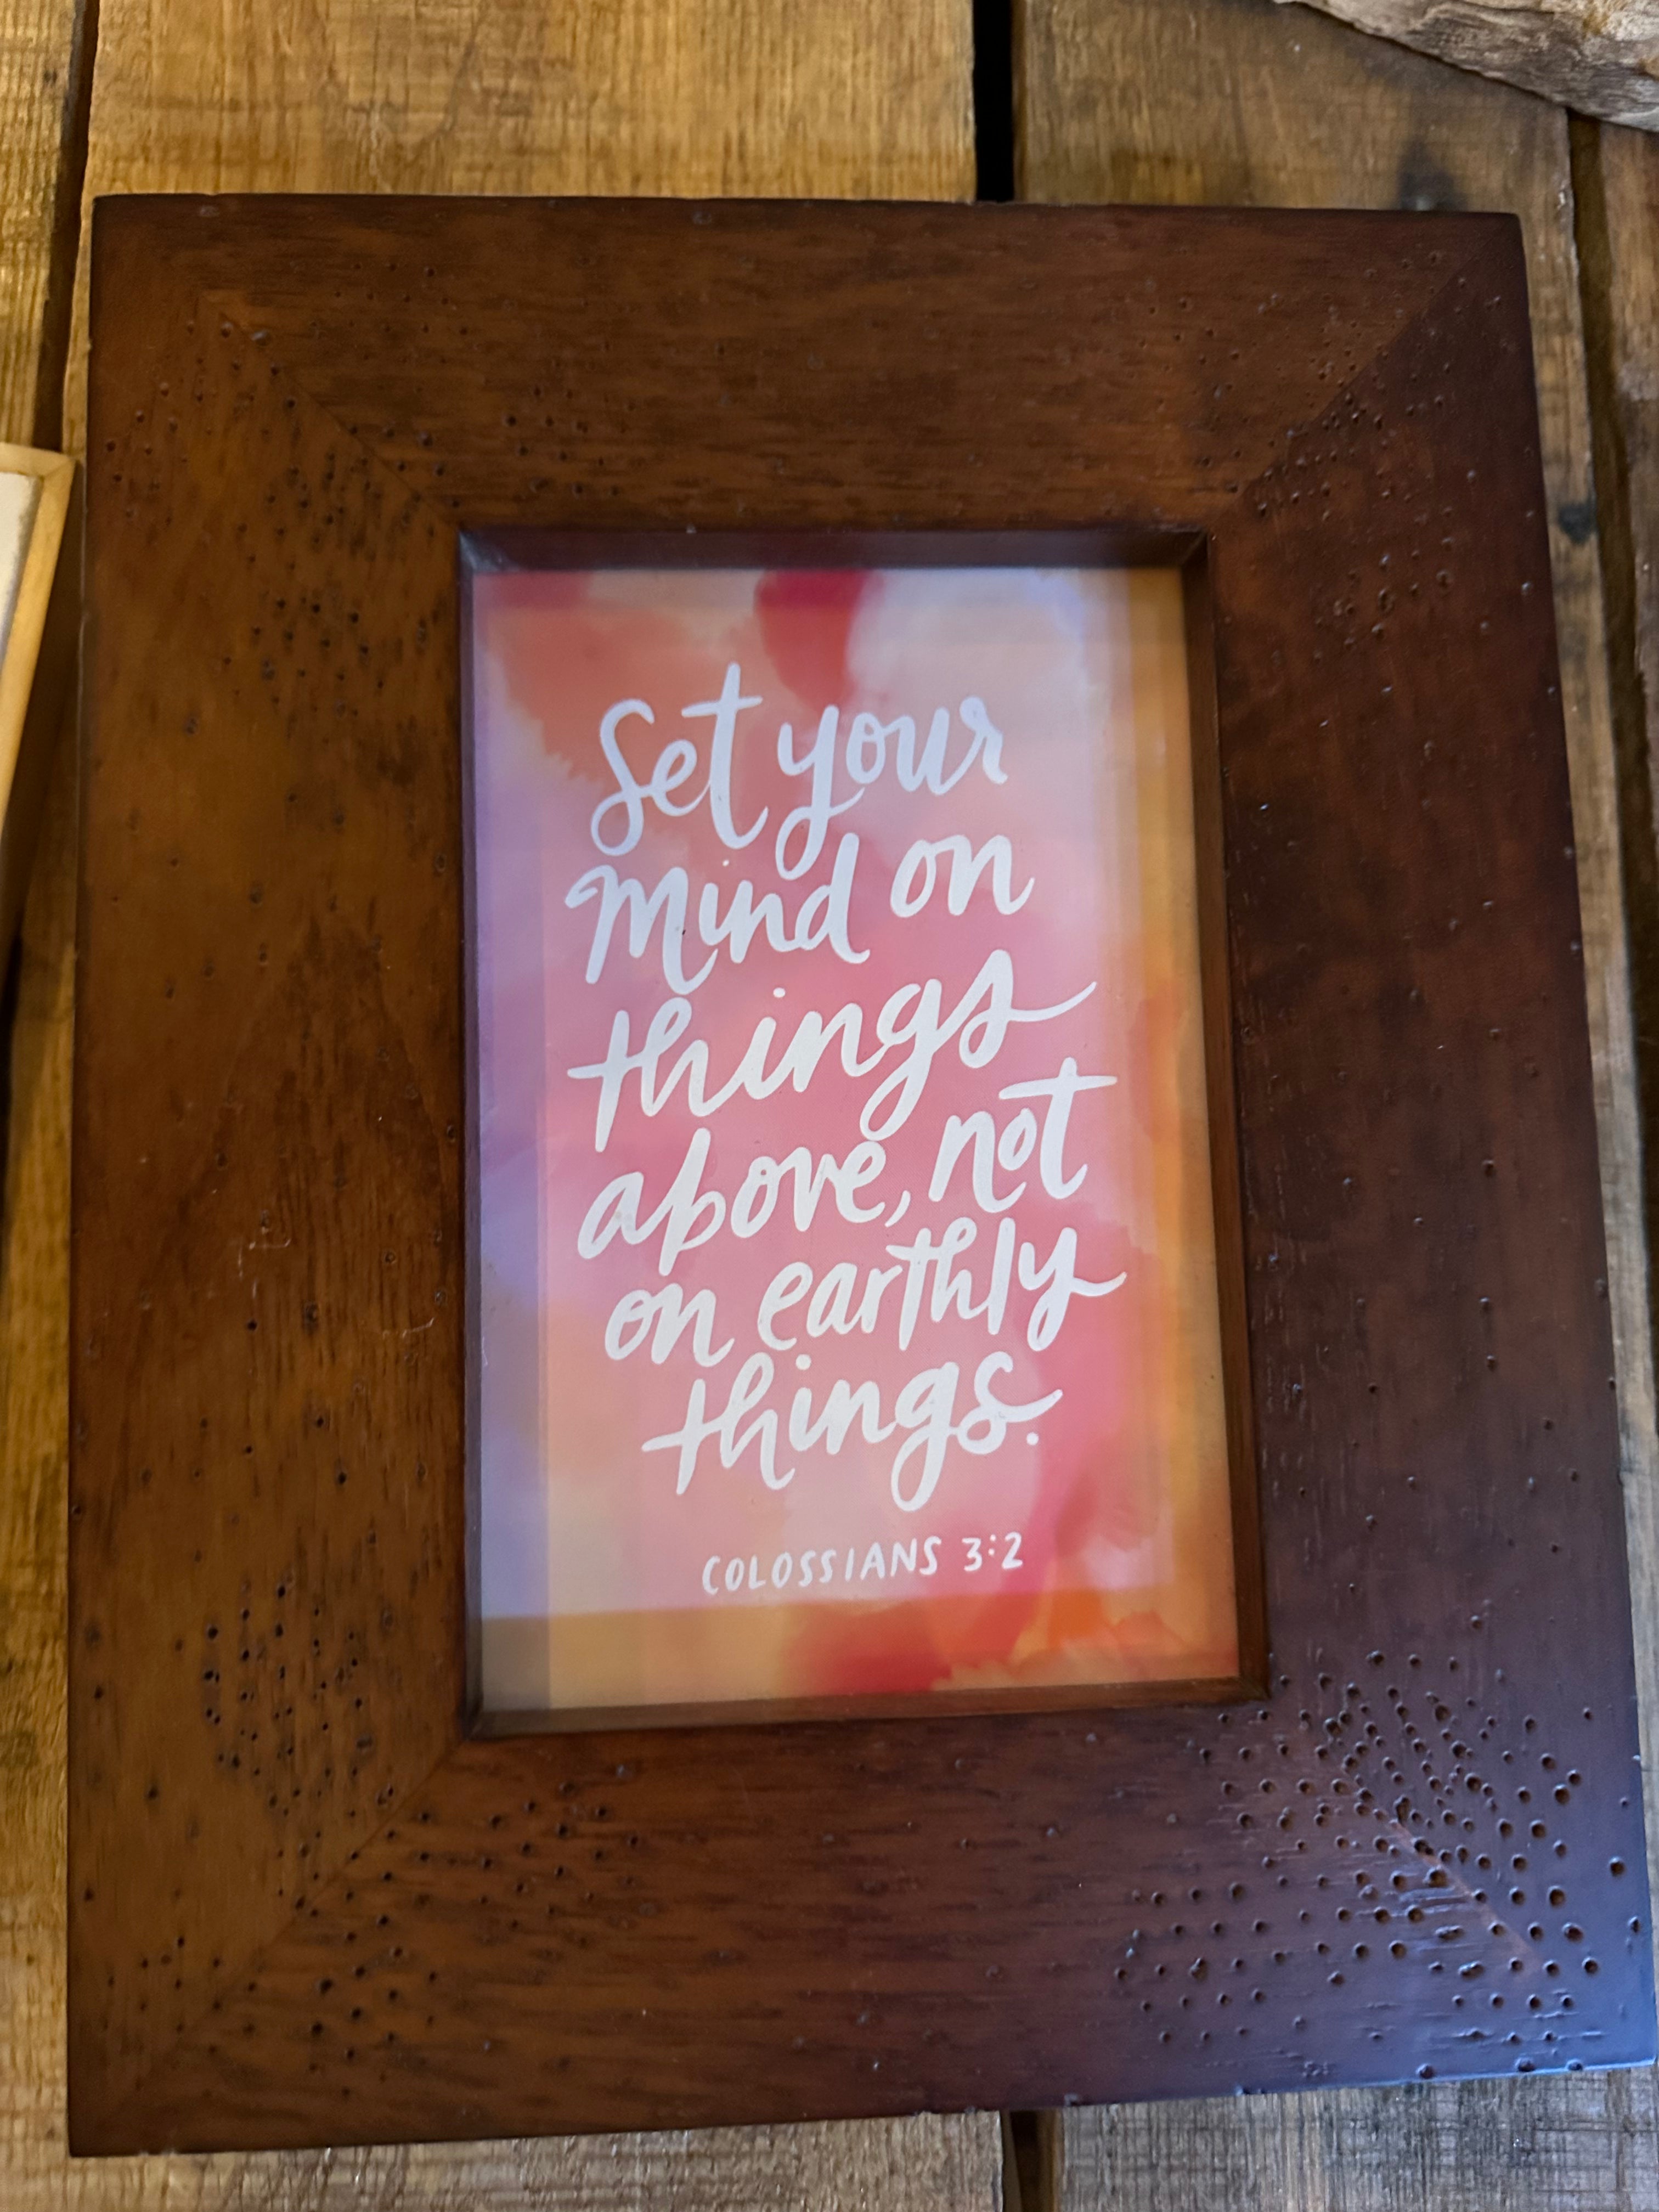 Set your
Mind on
things
above, not
on earthly
things.
COLOSSIANS 3:2